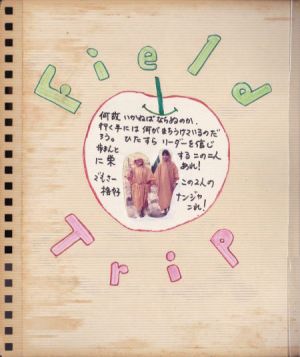 Field
何故いかねばならぬのか、
行く手には何がまちうけているのだ
ろう。ひたすらリーダーを信じ
歩まんとするこの二人
に栄あれ!
でもさーこの2人の
格好ナンジャ
これ!
Trip